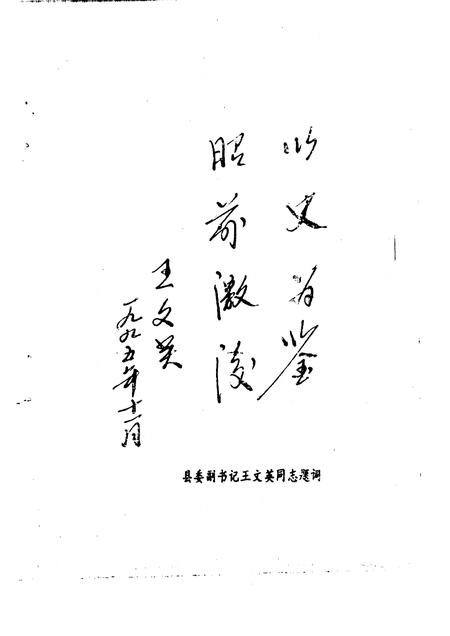 以史为鉴
昭前激后
王文英
一九九五年十一月
县委副书记王文英同志题词